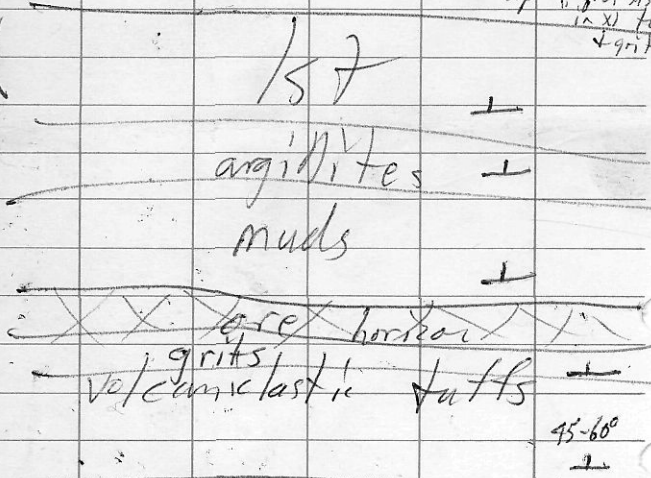 in x)
+ grit
lst
argillites
muds
ore horizon
grits
volcaniclastic tuffs
45-60°